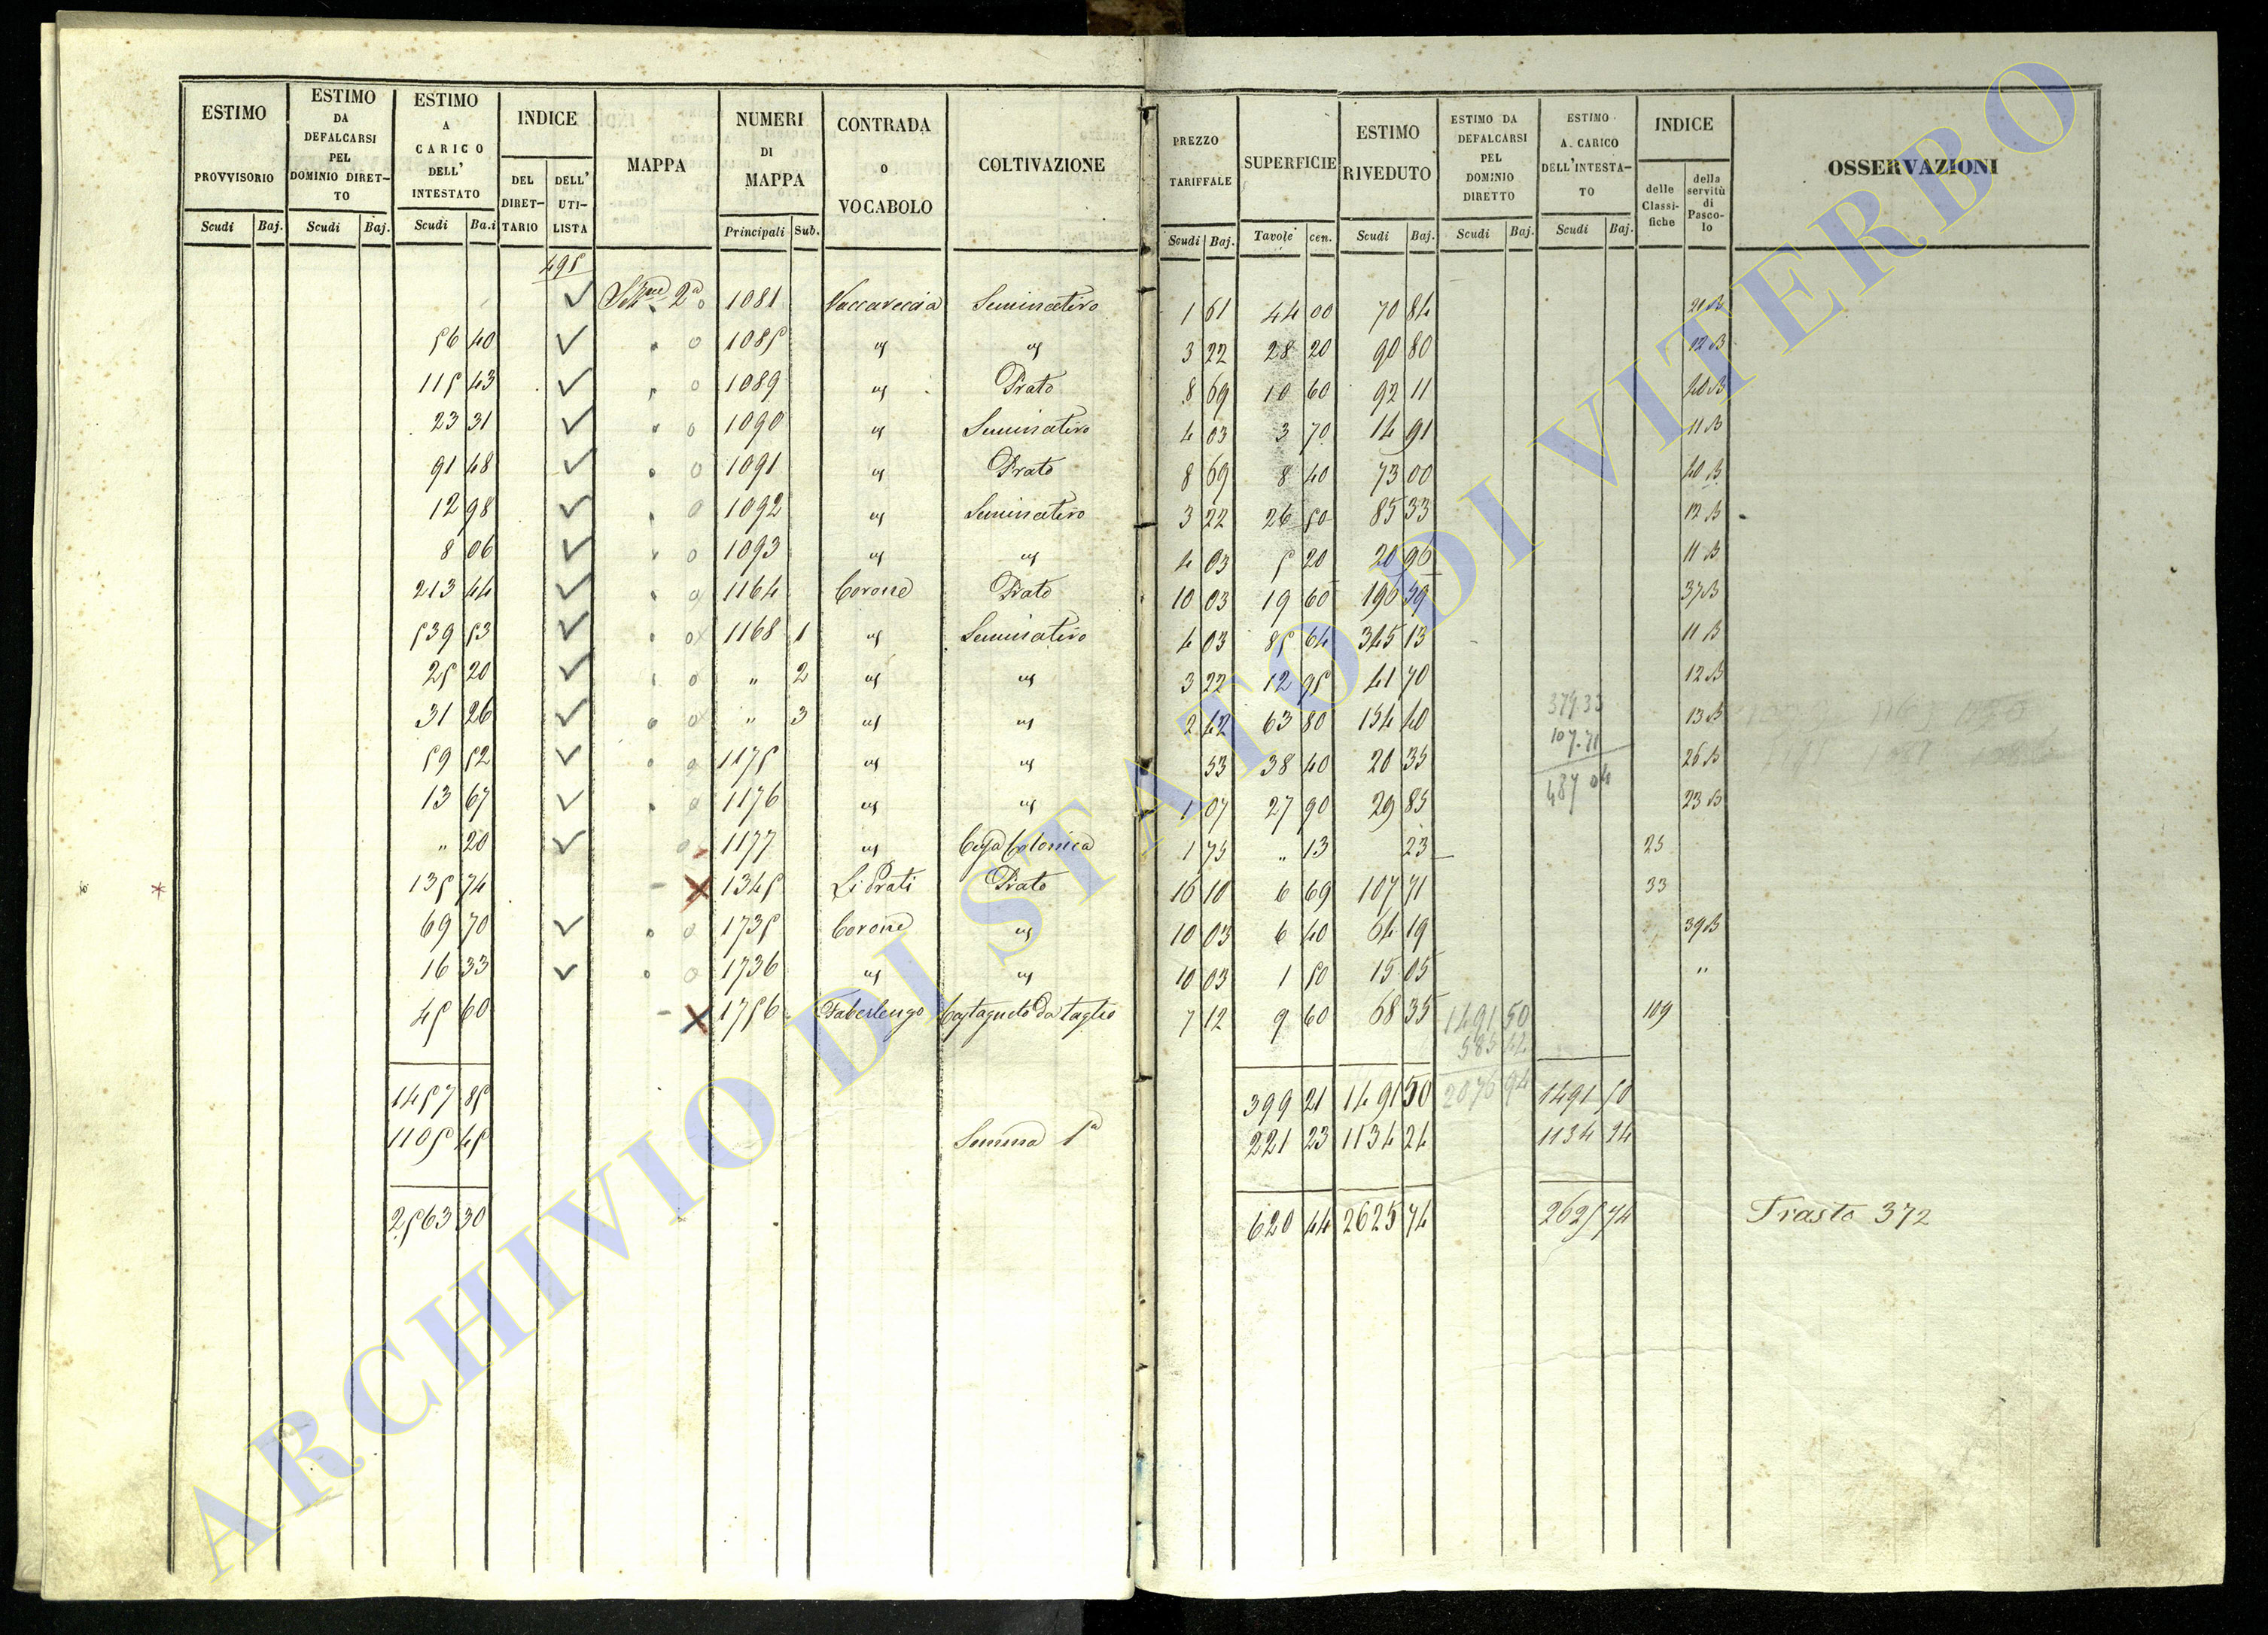 ESTIMO PROVVISORIO | ESTIMO DA DEFALCARSI PEL DOMINIO DIRETTO | ESTIMO A CARICO DELL' INTESTATO | INDICE | MAPPA | NUMERI DI MAPPA | CONTRADA O VOCABOLO | COLTIVAZIONE | PREZZO TARIFFALE | SUPERFICIE | ESTIMO RIVEDUTO | ESTIMO DA DEFALCARSI PEL DOMINIO DIRETTO | ESTIMO A CARICO DELL'INTESTATO | INDICE | OSSERVAZIONI
DEL DIRETTARIO | DELL' UTILISTA | delle Classifiche | della servitù di Pascolo
Scudi | Baj. | Scudi | Baj. | Scudi | Ba.i | Principali | Sub. | Scudi | Baj. | Tavole | cen. | Scudi | Baj. | Scudi | Baj. | Scudi | Baj.
495
✓ 2a 1081 Vaccareccia Seminativo 1 61 44 00 70 84 21 B
56 40 ✓ 1085 " " 3 22 28 20 90 80 12 B
115 43 ✓ 1089 " Prato 8 69 10 60 92 11 40 B
23 31 ✓ 1090 " Seminativo 4 03 3 70 14 91 11 B
91 48 ✓ 1091 " Prato 8 69 8 40 73 00 40 B
12 98 ✓ 1092 " Seminativo 3 22 26 50 85 33 12 B
8 06 ✓ 1093 " " 4 03 5 20 20 96 11 B
213 44 ✓ 1164 Corone Prato 10 03 19 60 196 59 37 B
539 53 ✓ 1168 1 " Seminativo 4 03 85 64 345 13 11 B
25 20 ✓ " 2 " " 3 22 12 95 41 70 12 B
31 26 ✓ " 3 " " 2 42 63 80 154 40 379 33 13 B
59 52 ✓ 1175 " " 53 38 40 20 35 107.71 26 B
13 67 ✓ 1176 " " 1 07 27 90 29 85 487 04 23 B
" 20 ✓ 1177 " Casa Colonica 1 75 " 13 23 25
135 74 X 1345 Li Prati Prato 16 10 6 69 107 71 33
69 70 ✓ 1735 Corone " 10 03 6 40 64 19 39 B
16 33 ✓ 1736 " " 10 03 1 50 15 05 "
45 60 X 1756 Faberlengo Castagneto Da taglio 7 12 9 60 68 35 1491 50 109
585 42
1457 85 399 21 1491 50 2076 94 1491 50
1105 45 Somma 1a 221 23 1134 24 1134 24
2563 30 620 44 2625 74 2625 74 Trasto 372
ARCHIVIO DI STATO DI VITERBO